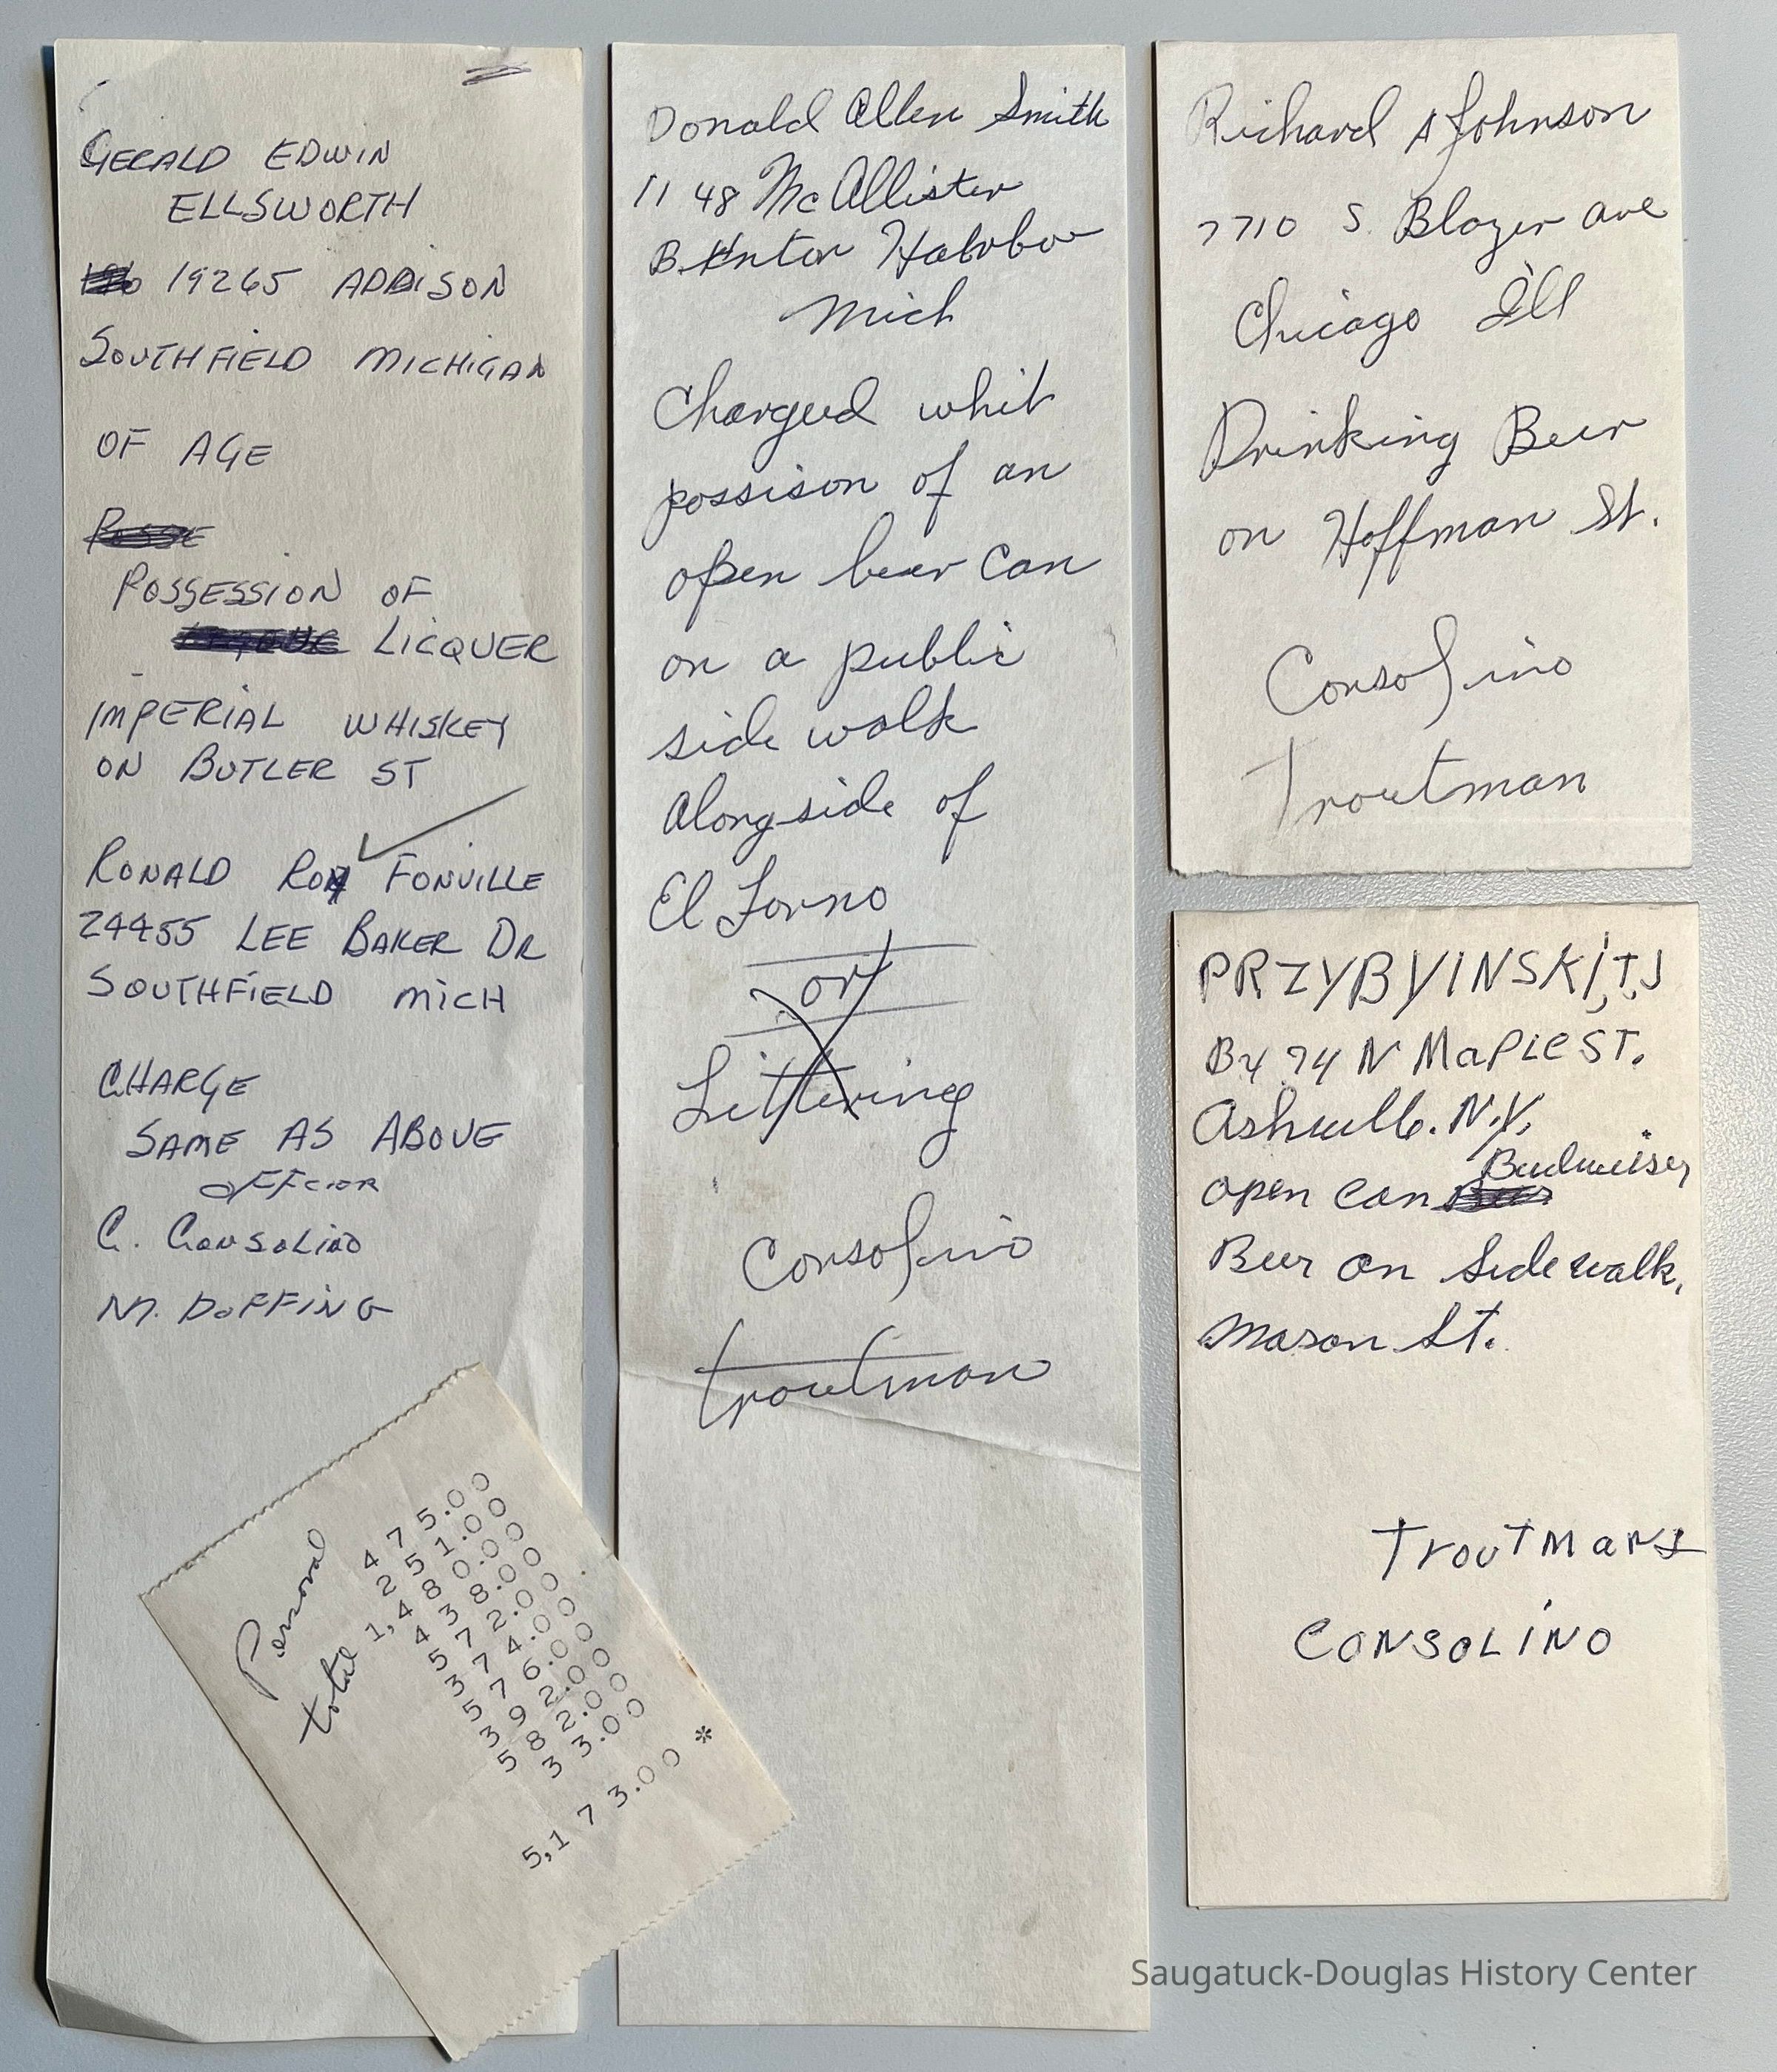 GERALD EDWIN
ELLSWORTH
19265 ADDISON
SOUTHFIELD MICHIGAN
OF AGE
POSSE
POSSESSION OF
LICQUER
IMPERIAL WHISKEY
ON BUTLER ST
RONALD ROY FONVILLE
24455 LEE BAKER DR
SOUTHFIELD MICH
CHARGE
SAME AS ABOVE
OFFCIOR
C. CONSOLINO
M. DOFFING
Personal
total
475.00
251.00
1,480.00
438.00
572.00
374.00
576.00
392.00
582.00
33.00
5,173.00 *
Donald Allen Smith
1148 McAllister
Mich
Chargeed whit
possison of an
open bear can
on a public
side walk
Alongside of
El Forno
or
Littering
Consolino
troutman
Richard A Johnson
7710 S. Blazer ave
Chicago Ill
Drinking Beer
on Hoffman St.
Consolino
Troutman
PRZYBYINSKI, T, J
74 N MaPLe ST.
N.Y.
Budweiser
open can
Beer on Sidewalk,
Mason St.
TrouTMan
CONSOLINO
Saugatuck-Douglas History Center